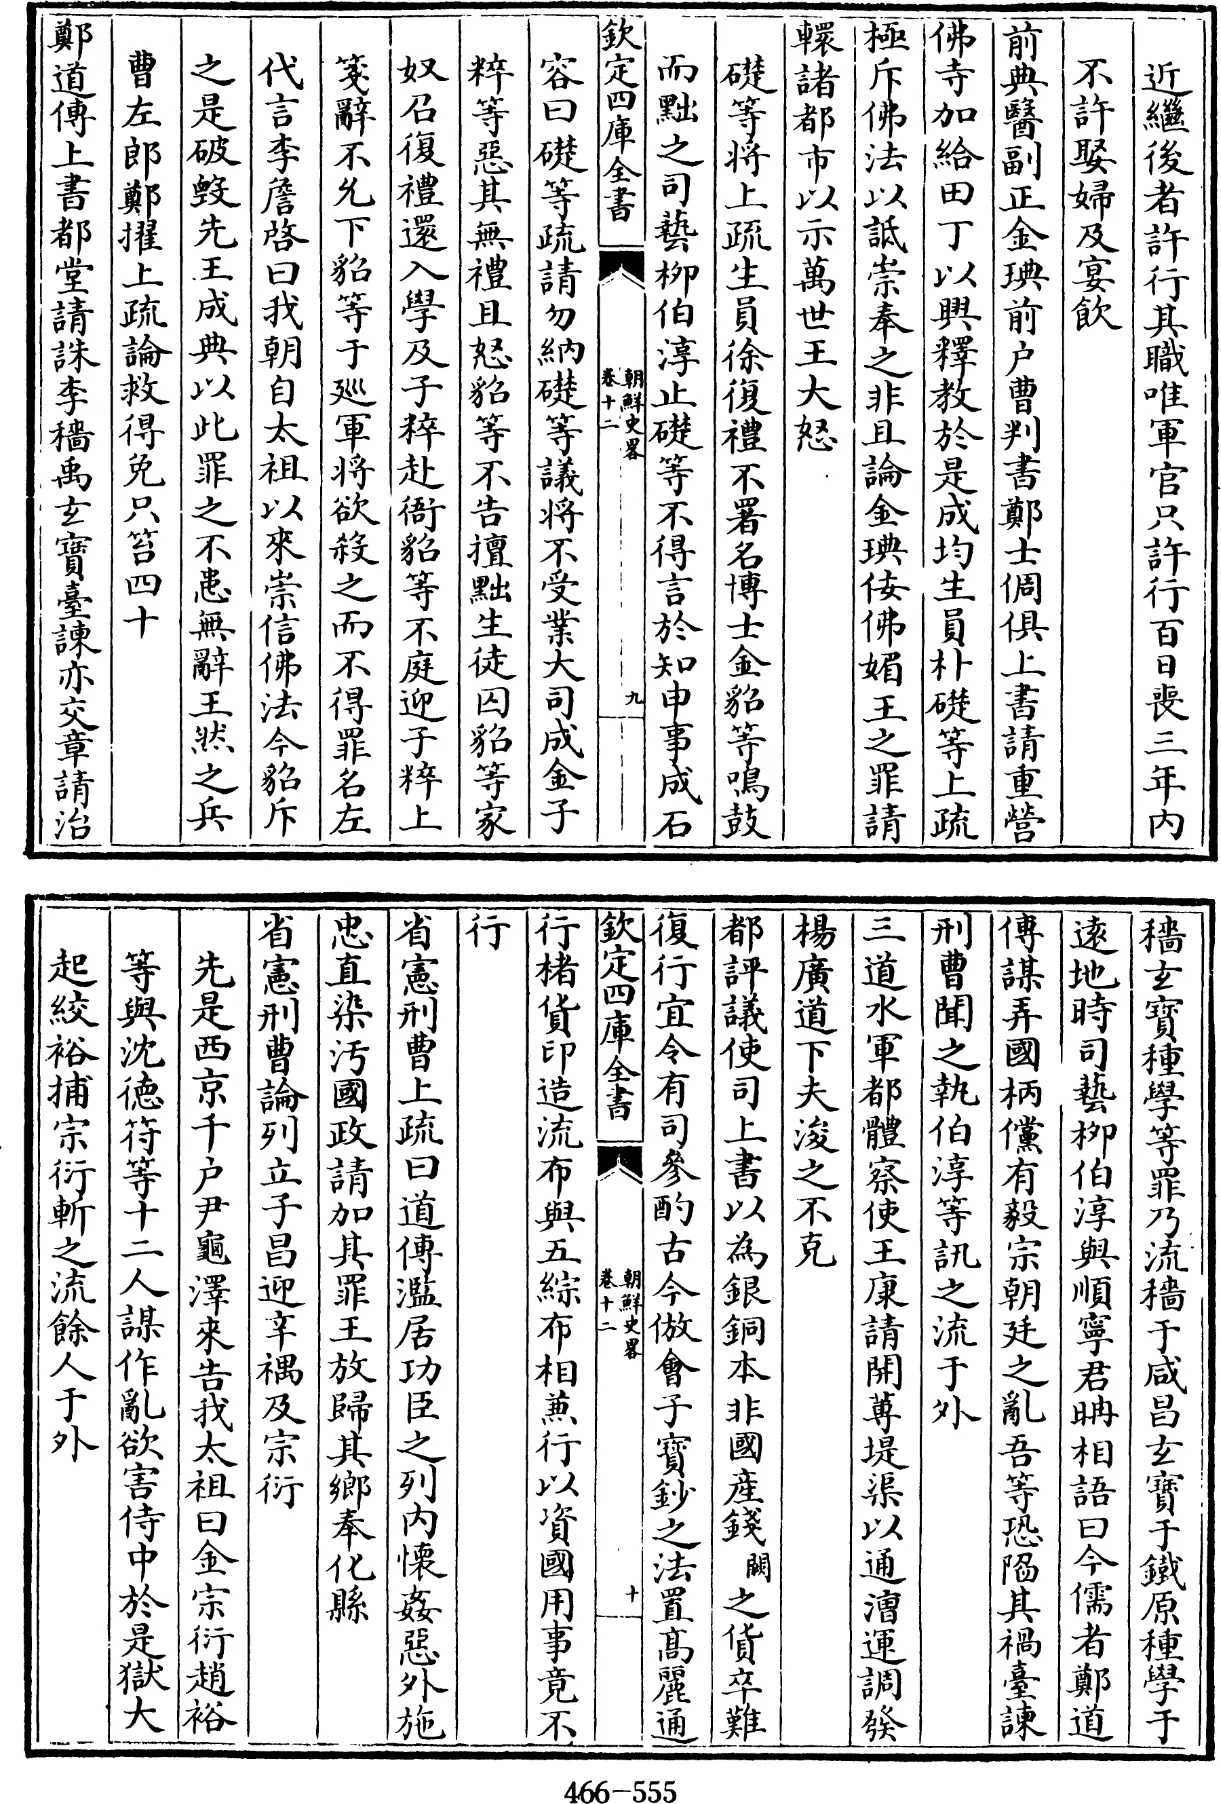 近繼後者許行其職唯軍官只許行百日喪三年內
不許娶婦及宴飲
前典醫副正金琠前户曹判書鄭士倜俱上書請重營
佛寺加給田丁以興釋教於是成均生員朴礎等上疏
極斥佛法以詆崇奉之非且論金琠佞佛媚王之罪請
轘諸都市以示萬世王大怒
礎等將上疏生員徐復禮不署名博士金貂等鳴鼓
而黜之司藝柳伯淳止礎等不得言於知申事成石
欽定四庫全書
朝鮮史畧
卷十二
九
容曰礎等疏請勿納礎等議將不受業大司成金子
粹等惡其無禮且怒貂等不告擅黜生徒囚貂等家
奴召復禮還入學及子粹赴衙貂等不庭迎子粹上
箋辭不允下貂等于巡軍將欲殺之而不得罪名左
代言李詹啓曰我朝自太祖以來崇信佛法今貂斥
之是破毁先王成典以此罪之不患無辭王然之兵
曹左郎鄭擢上疏論救得免只笞四十
鄭道傳上書都堂請誅李穡禹玄寶臺諫亦交章請治
穡玄寶種學等罪乃流穡于咸昌玄寶于鐵原種學于
遠地時司藝柳伯淳與順寧君聃相語曰今儒者鄭道
傳謀弄國柄儻有毅宗朝廷之亂吾等恐陷其禍臺諫
刑曹聞之執伯淳等訊之流于外
三道水軍都體察使王康請開蓴堤渠以通漕運調發
楊廣道下夫浚之不克
都評議使司上書以為銀銅本非國産錢闕之貨卒難
復行宜令有司參酌古今倣會子寶鈔之法置高麗通
欽定四庫全書
朝鮮史畧
卷十二
十
行楮貨印造流布與五綜布相兼行以資國用事竟不
行
省憲刑曹上疏曰道傳濫居功臣之列內懷姦惡外施
忠直染汚國政請加其罪王放歸其鄉奉化縣
省憲刑曹論列立子昌迎辛禑及宗衍
先是西京千户尹龜澤來告我太祖曰金宗衍趙裕
等與沈德符等十二人謀作亂欲害侍中於是獄大
起絞裕捕宗衍斬之流餘人于外
466-555